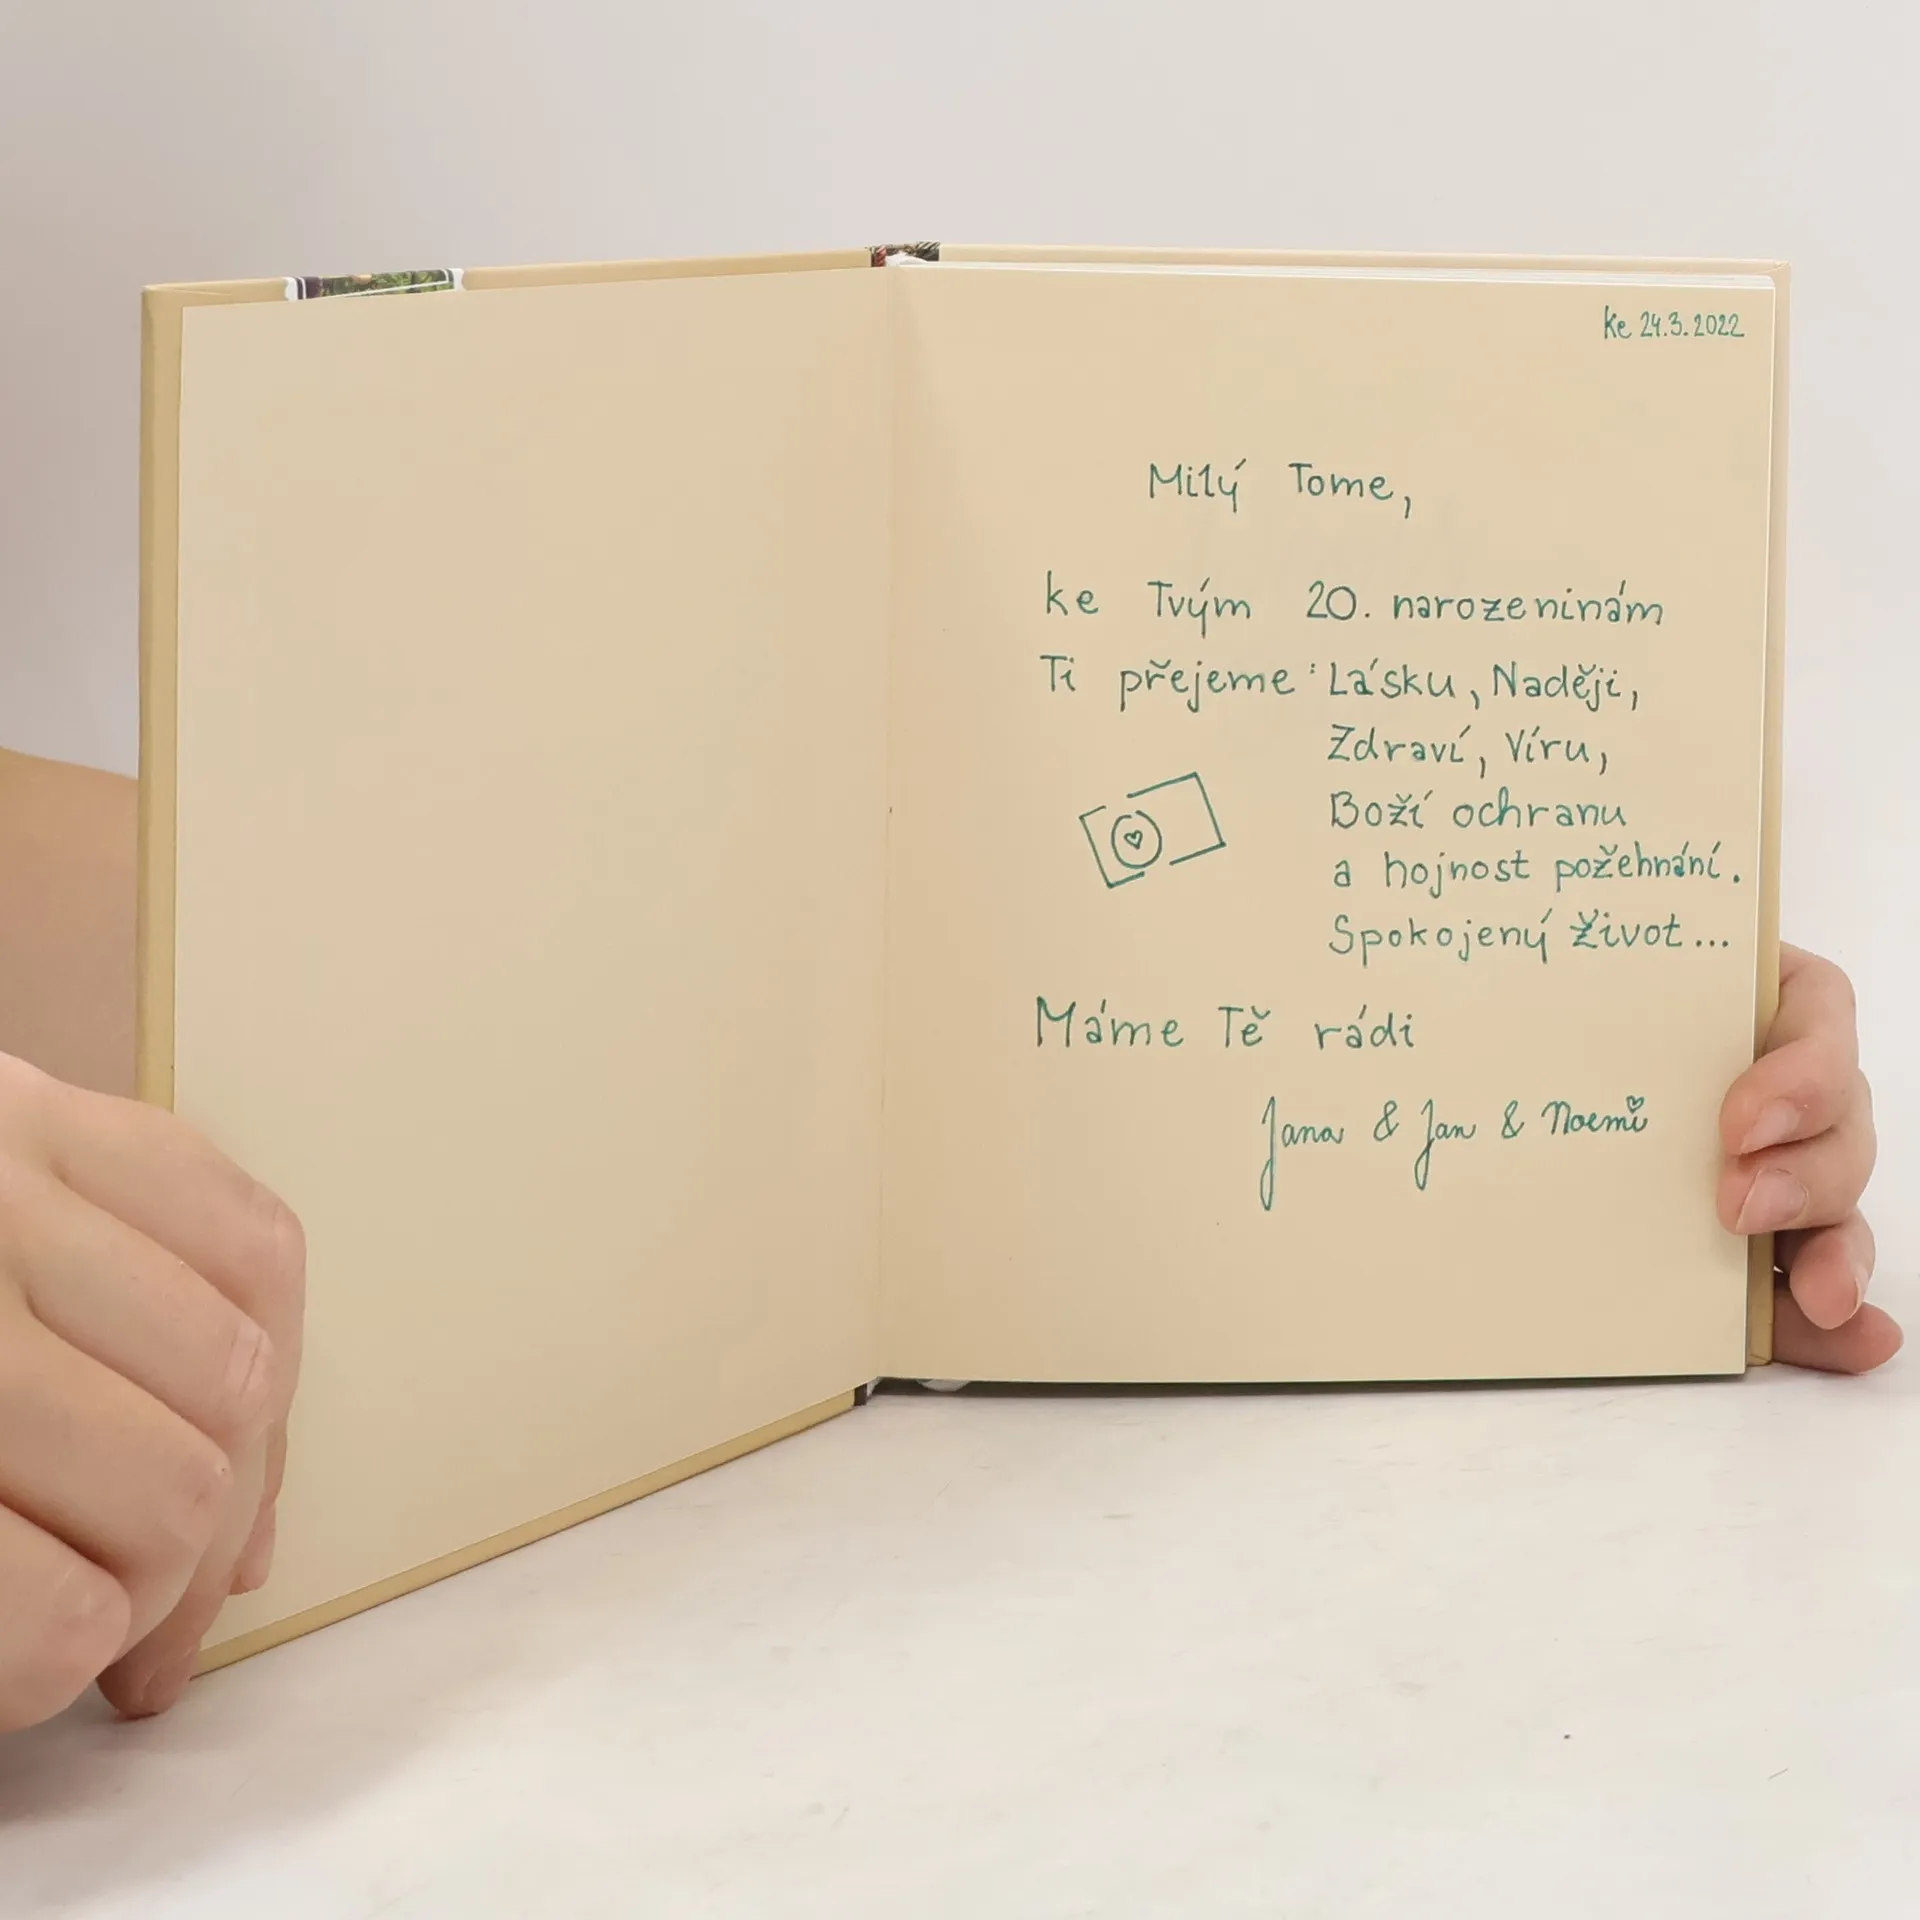 ke 24.3.2022
Milý Tome,
ke Tvým 20. narozeninám
Ti přejeme: Lásku, Naději,
Zdraví, Víru,
Boží ochranu
a hojnost požehnání.
Spokojený život...
Máme Tě rádi
Jana & Jan & Noemi